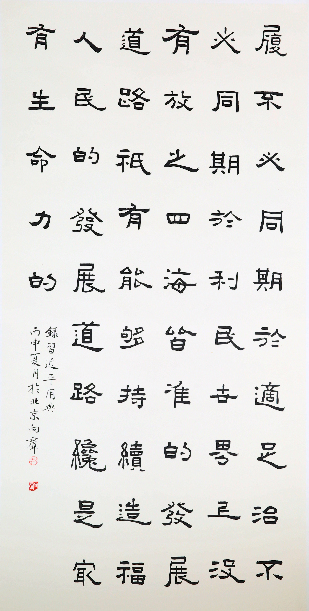 履不必同期於適足治不
必同期於利民世界上沒
有放之四海皆准的發展
道路祇有能够持續造福
人民的發展道路纔是最
有生命力的
錄習近平用典
丙申夏月於北京